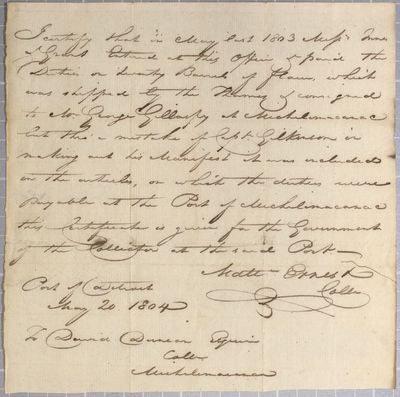 I certify that in May last 1803 Messrs Innes
& Grant Entered at this Office & paid the
Duties on twenty Barrels of Flour, which
was shipped by the Thames & consigned
to Mr. George Gillespy at Michilimacanac
but thro' a mistake of Capt. Gilkinson in
making out his Manifest it was included
in the articles, on which the duties were
payable at the Port of Michilimacanac
this Certificate is given for the Government
of the Collector at the said Port—
Matte Ernest
Collr
Port of Detroit
May 20. 1804
To David Duncan Esquire
Collr
Michilimacanac